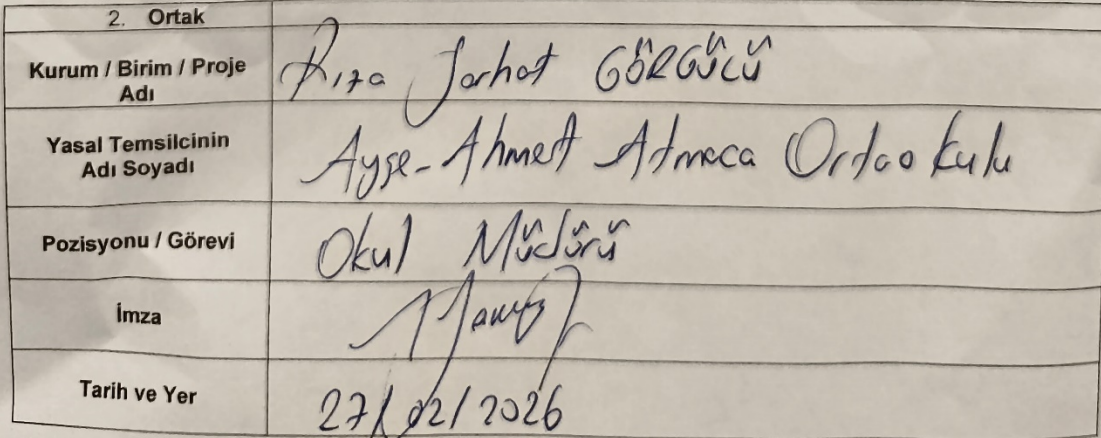 2. Ortak
Kurum / Birim / Proje Adı
Rıza Serhat GÖRGÜLÜ
Yasal Temsilcinin Adı Soyadı
Ayşe-Ahmet Atmaca Ortaokulu
Pozisyonu / Görevi
Okul Müdürü
İmza
Tarih ve Yer
27/02/2026